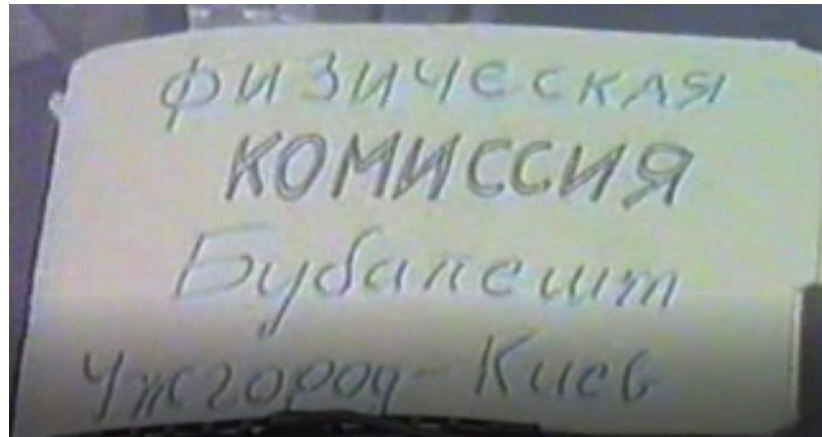 физическая
КОМИССИЯ
Будапешт
Ужгород-Киев